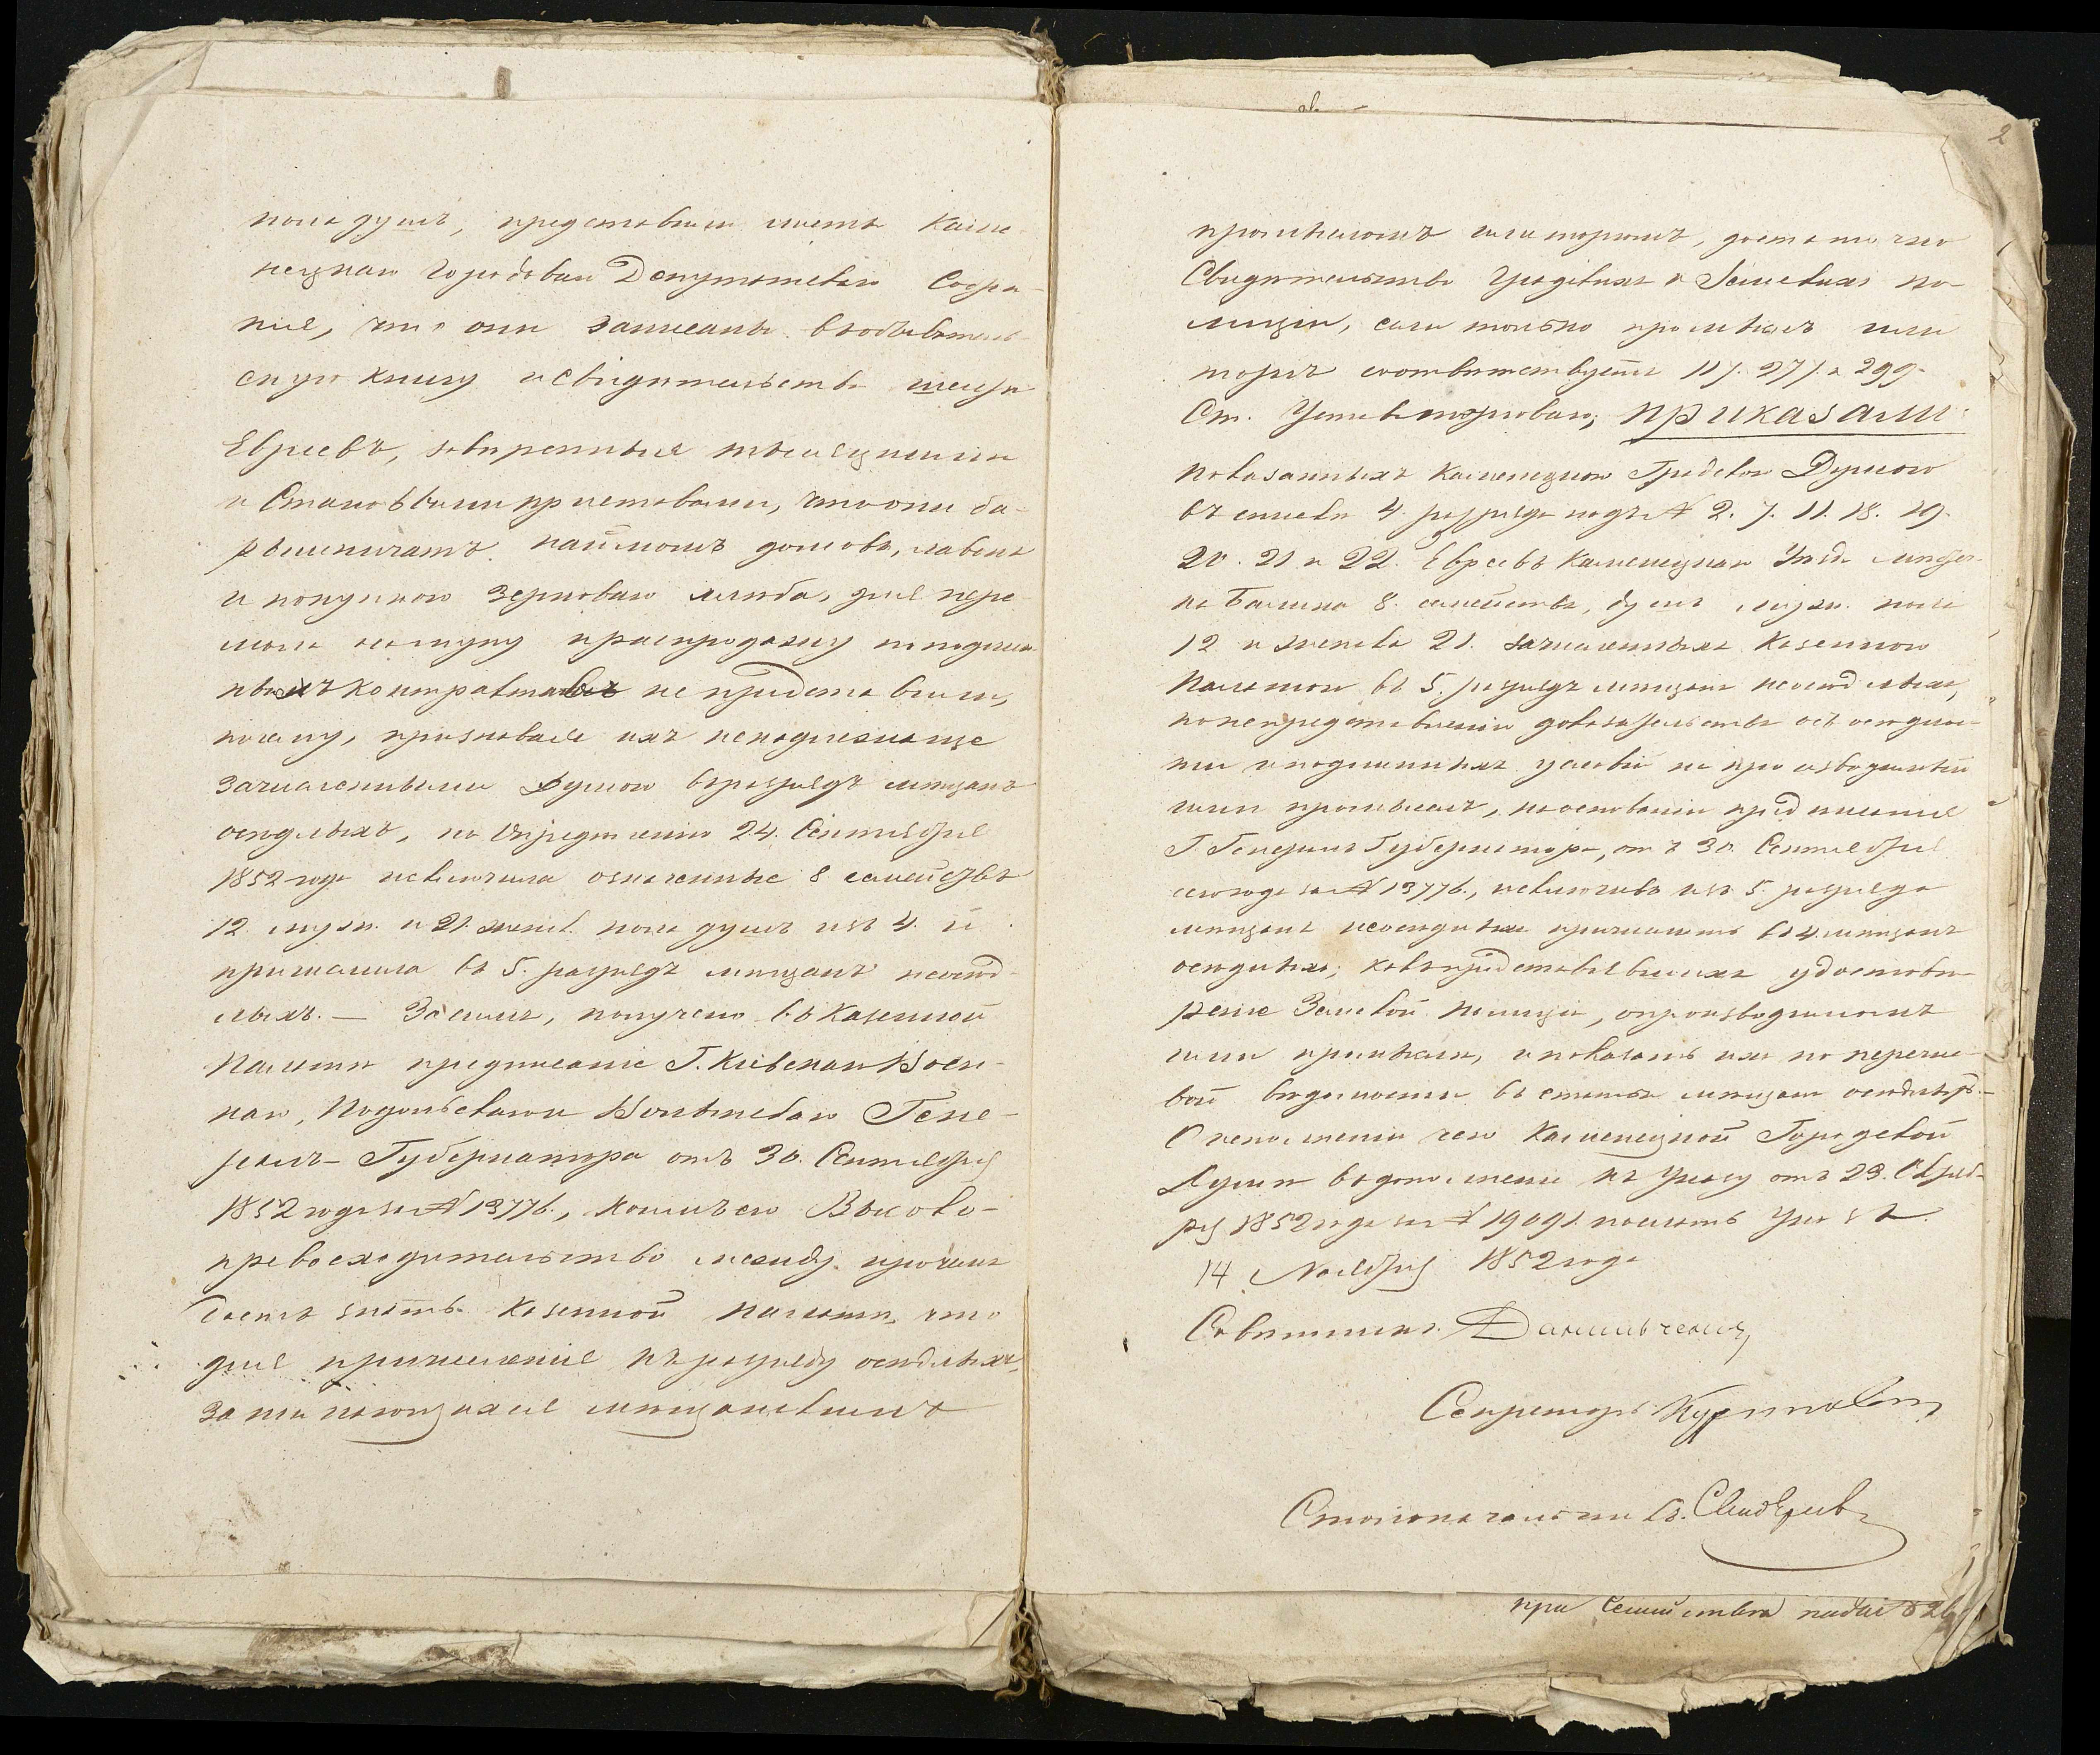 пола душъ, представили листъ Каме-
нецкаго Городоваго Депутатскаго Собра-
нія, что они записаны въ обыватель-
скую книгу и свидетельства
Евреевъ, заверенныя
и Становыми приставами, что они за-
наймомъ домовъ, лавокъ
и покупкою зерноваго хлеба, для пере-
мола на муку и распродажу но подлин-
ныхъ контрактовъ не представили,
почему, признавая ихъ неподлежаще
зачисленными Думою въ разрядъ мещанъ
оседлыхъ, по определенію 24. Сентября
1852 года исключила означенные 8 семействъ
12 муж. и 21. женск. пола душъ изъ 4. и
причислила въ 5. разрядъ мещанъ неосед-
лыхъ. — За симъ, получено въ Казенной
Палате предписаніе Г. Кіевскаго Воен-
наго, Подольскаго и Волынскаго Гене-
ралъ-Губернатора отъ 30. Сентября
1852 года за № 13776., коимъ его Высоко-
превосходительство между прочимъ
даетъ знать Казенной Палате, что
для причисленія къ разряду оседлыхъ,
занимающихся мещанскимъ
промысломъ или торгомъ, достаточно
Свидетельства Градскихъ и Земскихъ по-
лиціи, если только промыселъ или
торгъ соответствуетъ 117. 277. и 299.
Ст. Устава торговаго; приказали:
показанныхъ Каменецкою Градскою Думою
въ списке 4. разряда подъ № 2. 7. 11. 18. 19.
20. 21 и 22. Евреевъ Каменецкаго Уезда местеч-
ка Балина 8. семействъ, душъ муж. пола
12 и женска 21. зачисленныхъ Казенною
Палатою въ 5. разрядъ мещанъ неоседлыхъ,
по непредставленіи доказательствъ объ оседло-
сти и подлинныхъ условій на производимый
ими промыселъ, на основаніи предписанія
Г. Генералъ Губернатора, отъ 30. Сентября
сего года за № 13776., исключивъ изъ 5. разряда
мещанъ неоседлыхъ причислить въ 4. мещанъ
оседлыхъ, какъ представившихъ удостове-
реніе Земской Полиціи, о производимомъ
ими промысле, и показать ихъ по перечне-
вой ведомости въ статье мещанъ оседлыхъ.—
О исполненіи чего Каменецкой Городской
Думе въ дополненіе къ Указу отъ 23. Октяб-
ря 1852 года за № 19091. послать Указъ.
14 Ноября 1852 года
Советникъ
Секретарь
Столоначальникъ
при семействе